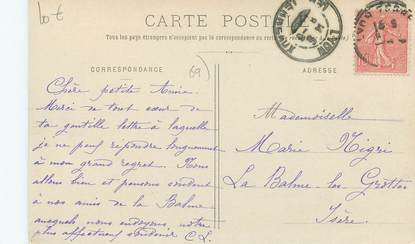 lot
CARTE POSTALE
Tous les pays étrangers n'acceptent pas la correspondance au
CORRESPONDANCE
ADRESSE
69
Chère petite Amie
Merci de tout cœur de
ta gentille lettre à laquelle
je ne peux répondre longuement
à mon grand regret. Nous
allons bien et pensons souvent
à nos amis de la Balme
auxquels nous envoyons notre
plus affectueux souvenir C.L.
Mademoiselle
Marie Nigri
La Balme-les-Grottes
Isère
LYON